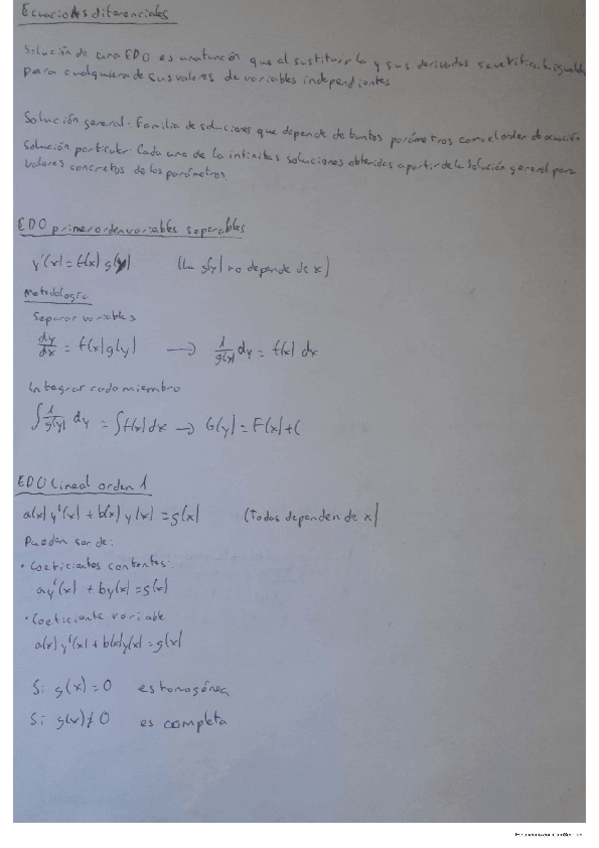 Ecuaciones diferenciales
Solución de una EDO es una función que al sustituirla y sus derivadas se verifica la igualdad
para cualquiera de sus valores de variables independientes
Solución general: Familia de soluciones que depende de tantos parámetros como el orden de ecuación
Solución particular: Cada una de la infinitas soluciones obtenidas a partir de la solución general para
valores concretos de los parámetros.
EDO primer orden variables separables
y'(x) = f(x) g(y) (La g(y) no depende de x)
Metodología
Separar variables
dy/dx = f(x) g(y) → 1/g(y) dy = f(x) dx
Integrar cada miembro
∫ 1/g(y) dy = ∫ f(x) dx → G(y) = F(x) + C
EDO Lineal orden 1
a(x) y'(x) + b(x) y(x) = g(x) (Todas dependen de x)
Pueden ser de:
• Coeficientes contentes:
ay'(x) + by(x) = g(x)
• Coeficiente variable
a(x) y'(x) + b(x) y(x) = g(x)
Si g(x) = 0 es homogénea
Si g(x) ≠ 0 es completa